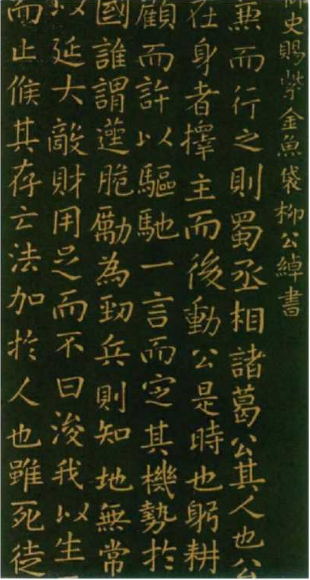 史賜紫金魚袋柳公綽書
兼而行之則蜀丞相諸葛公其人也公
在身者擇主而後動公是時也躬耕
顧而許以驅馳一言而定其機勢於
國誰謂遳脆勵為勁兵則知地無常
以延大敵財用足而不曰浚我以生
而止候其存亡法加於人也雖死徒